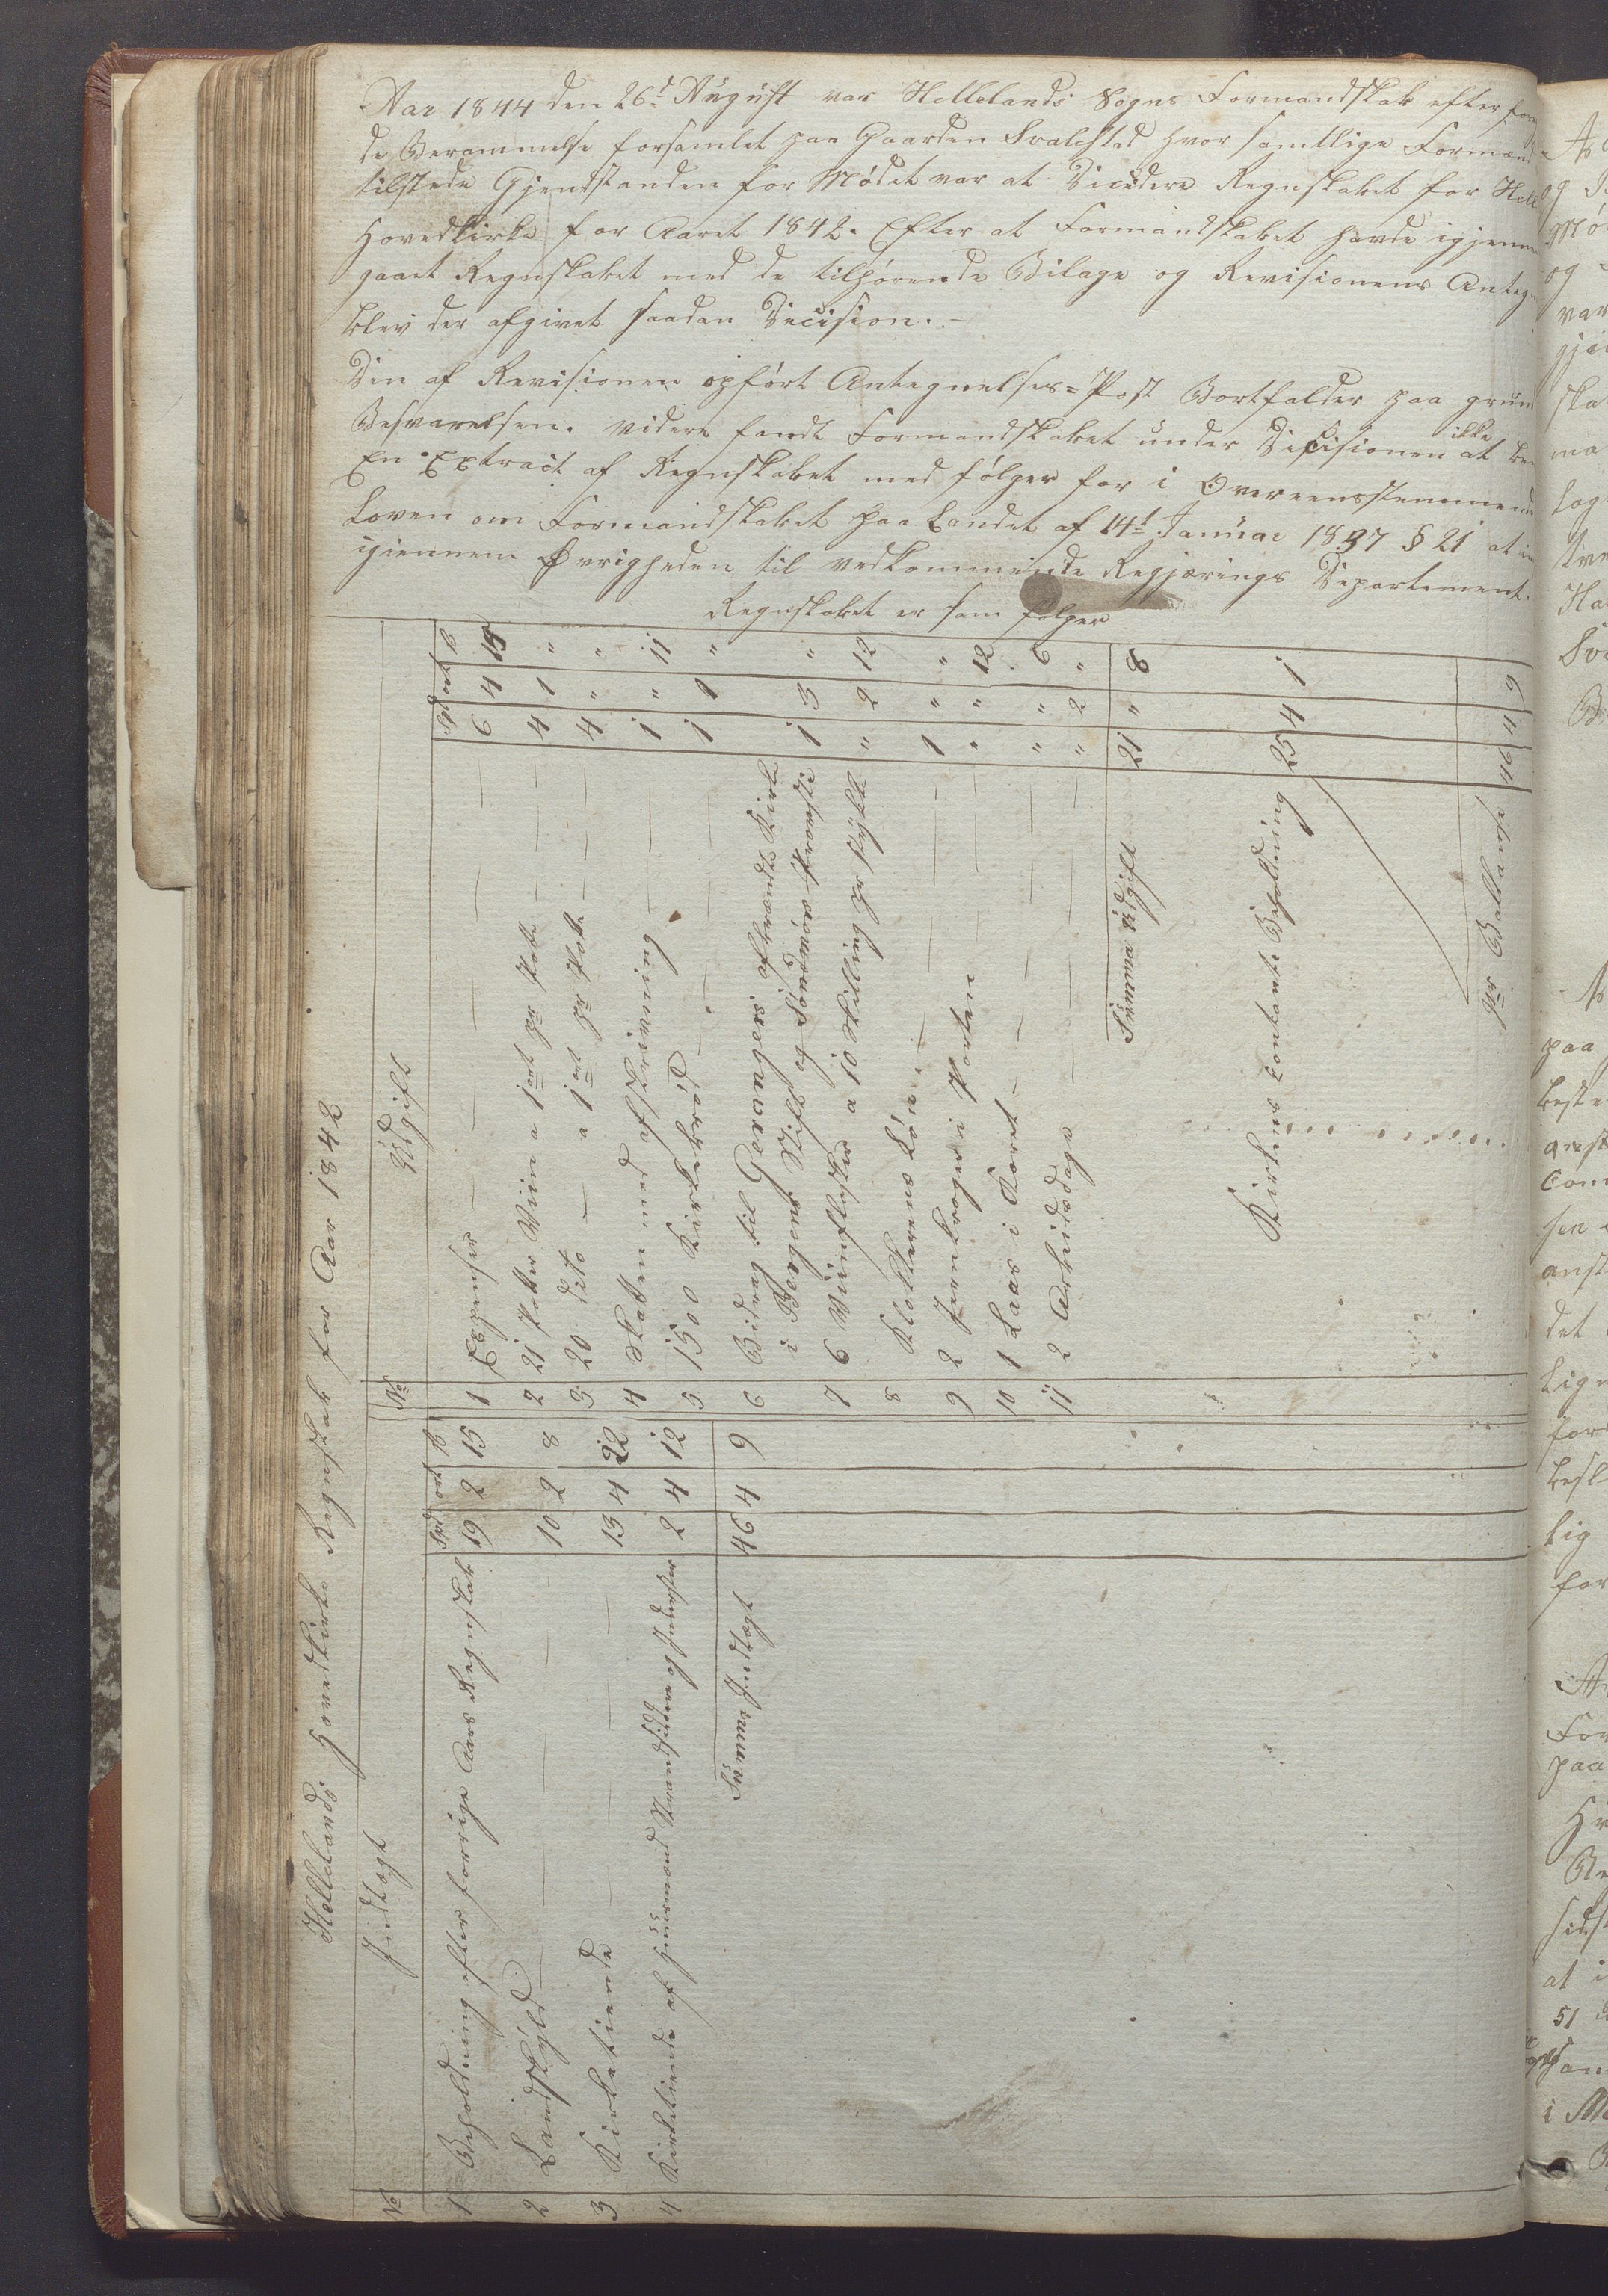 Aar 1844 den 26d August var Hellelands Sogns Formandskab efter fore
de Berammelse forsamlet paa Gaarden Svalestad hvor samtlige Formænd
tilstede Gjendstanden for Mødet var at Decidere Regnskabet for Hell
Hovedkirke for Aaret 1842. Efter at Formandskabet havde igjennem
gaaet Regnskabet med de tilhørende Bilage og Revisionens Antegn
blev der afgivet saadan Decision. –
Den af Revisionen opført Antegnelses=Post Bortfalder paa grund
Besvarelsen. videre fandt Formandskabet under Decisionen ikke at be
En Extract af Regnskabet med følger for i Overeensstemmende
Loven om Formandskabet paa Landet af 14d Januar 1837 § 21 at in
igiennem Øvrigheden til vedkommende Regjærings Departement.
Regnskabet er som følger
Hellelands Hovedkirke Regnskab for Aar 1842
No Indtægt Spd ort ß
1 Beholdning efter forrige Aars Regnskab 19 2 15
2 Landskyld 10 2 8
3 Kirketiende 13 4 22
4 Kirketiende af Huusmænd Strandsiddere og Inderster 2 4 12
Summa Indtægt 46 4 9
No Udgift Spd ort ß
1 Expenser 6 4 15
2 21 Potter Viin a 1 ort pr Potte 4 1 "
3 20 dito – a 1 ort pr Potte 4 " "
4 Skatten med afskrivning 1 " 11
5 1500 Kirkebrød 1 1 "
6 Bidrag til Gevangers afbrændte Kirke
i Bergens Stift og Søndmørs Provsti 1 3 "
7 6 Viinflasker a 10 Skilling pr Stykk " 2 12
8 Klokkerens Løn 1 " "
9 2 Jernkroger i Porten " " 12
10 1 Laas i Koret " " 6
11 2 Arbeidsdage " 2 "
Summa Udgift 21 " 8
Kirkens Contante Beholdning 25 4 1
pr Ballanse 46 4 9